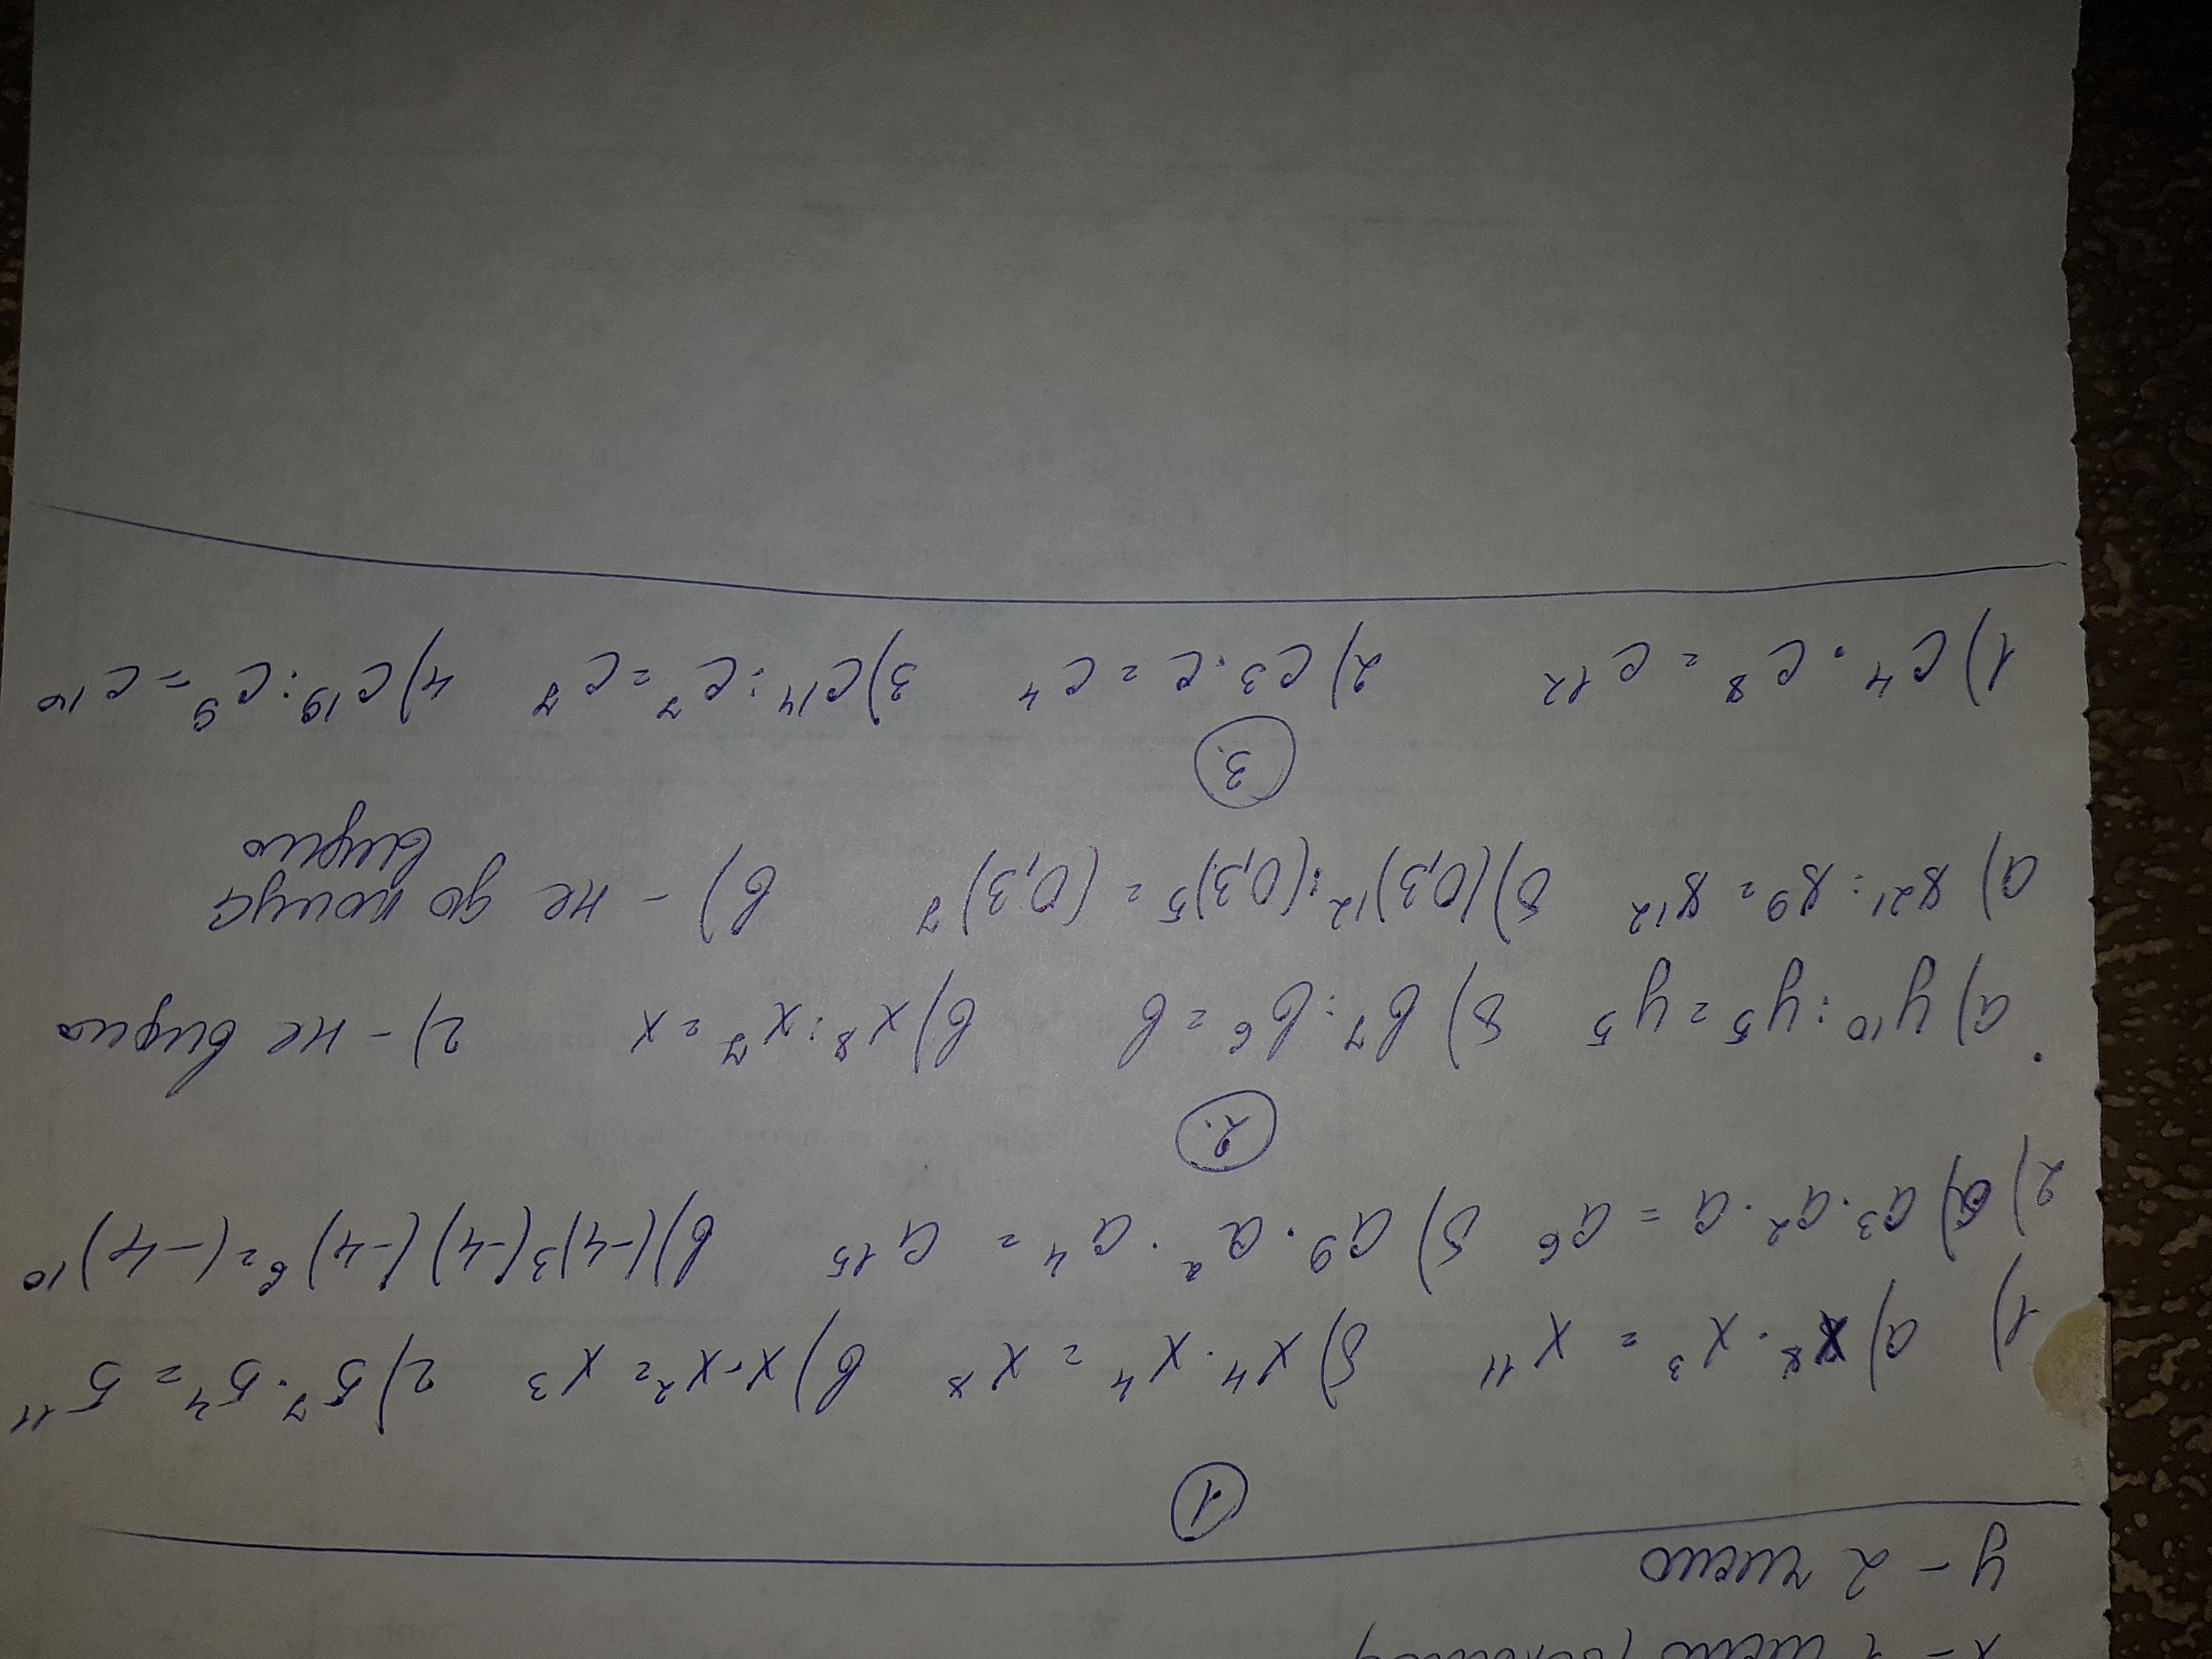 y - 2 число
①
1) а) x⁸ · x³ = x¹¹ б) x⁴ · x⁴ = x⁸ в) x · x² = x³ г) 5⁷ · 5⁴ = 5¹¹
2) а) a³ · a² · a = a⁶ б) a⁹ · a² · a⁴ = a¹⁵ в) (-4)³ (-4) (-4)⁶ = (-4)¹⁰
②.
а) y¹⁰ : y⁵ = y⁵ б) b⁷ : b⁶ = b в) x⁸ : x⁷ = x г) - не видно
а) 8²¹ : 8⁹ = 8¹² б) (0,3)¹² : (0,3)⁵ = (0,3)⁷ в) - не до конца
видно
③.
1) c⁴ · c⁸ = c¹² 2) c³ · c = c⁴ 3) c¹⁴ : c⁷ = c⁷ 4) c¹⁹ : c⁹ = c¹⁰